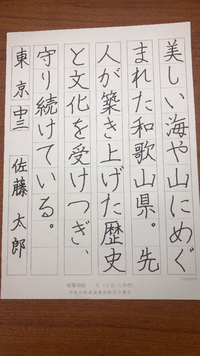 美しい海や山にめぐ
まれた和歌山県。先
人が築き上げた歴史
と文化を受けつぎ、
守り続けている。
東京 中三 佐藤 太郎